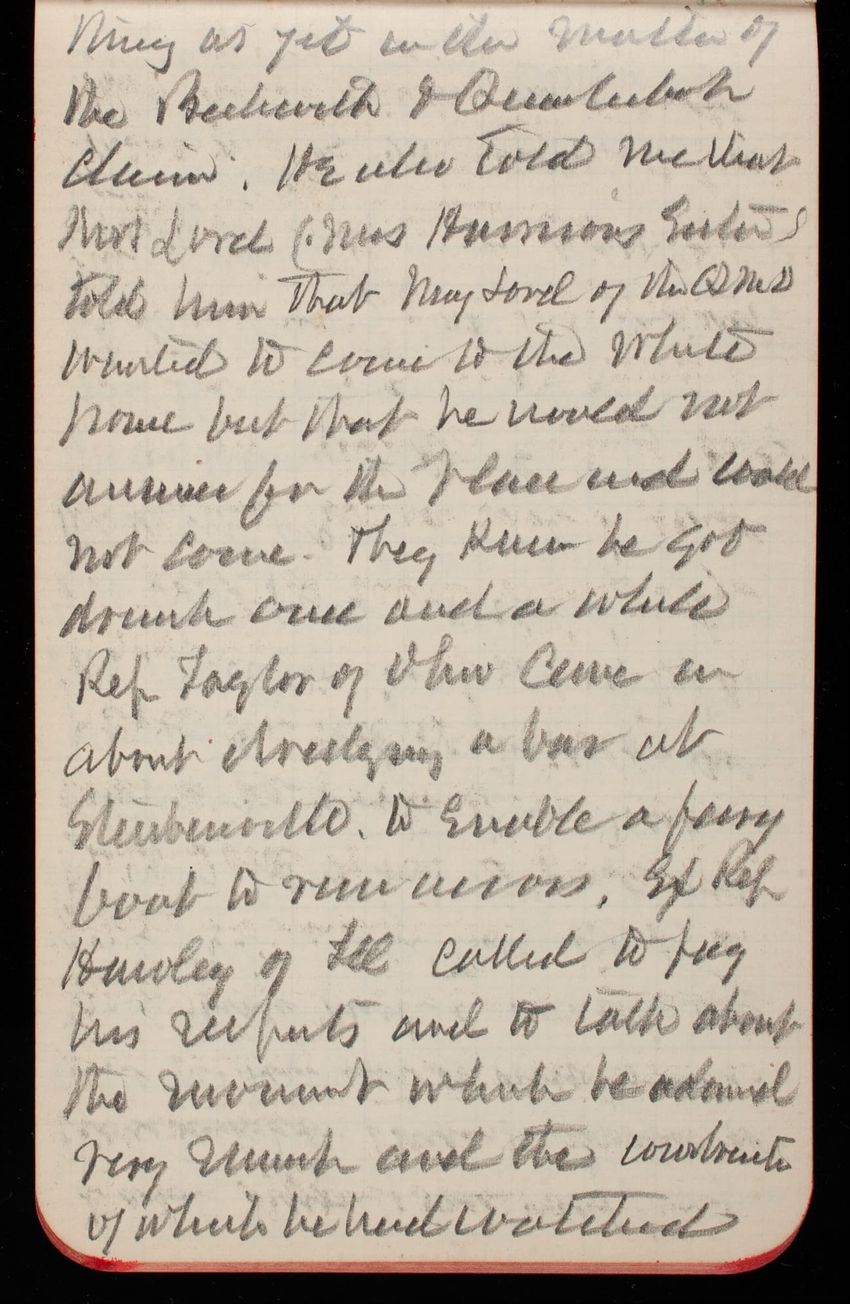 thing as yet in the matter of
the Beckwith & Quackenbush
Claim. He also told me that
Mrs Lord (Mrs Harrisons Sister)
told him that May Lord of the QMD
wanted to come to the White
house but that he would not
answer for the place and could
not come. They knew he got
drunk once and a while
Rep Taylor of Ohio Came in
about dredging a bar at
Steubenville. to Enable a ferry
boat to run across, Ex Rep
Hawley of Ill called to pay
his respects and to talk about
the monument which he admired
very much and the construction
of which he had watched